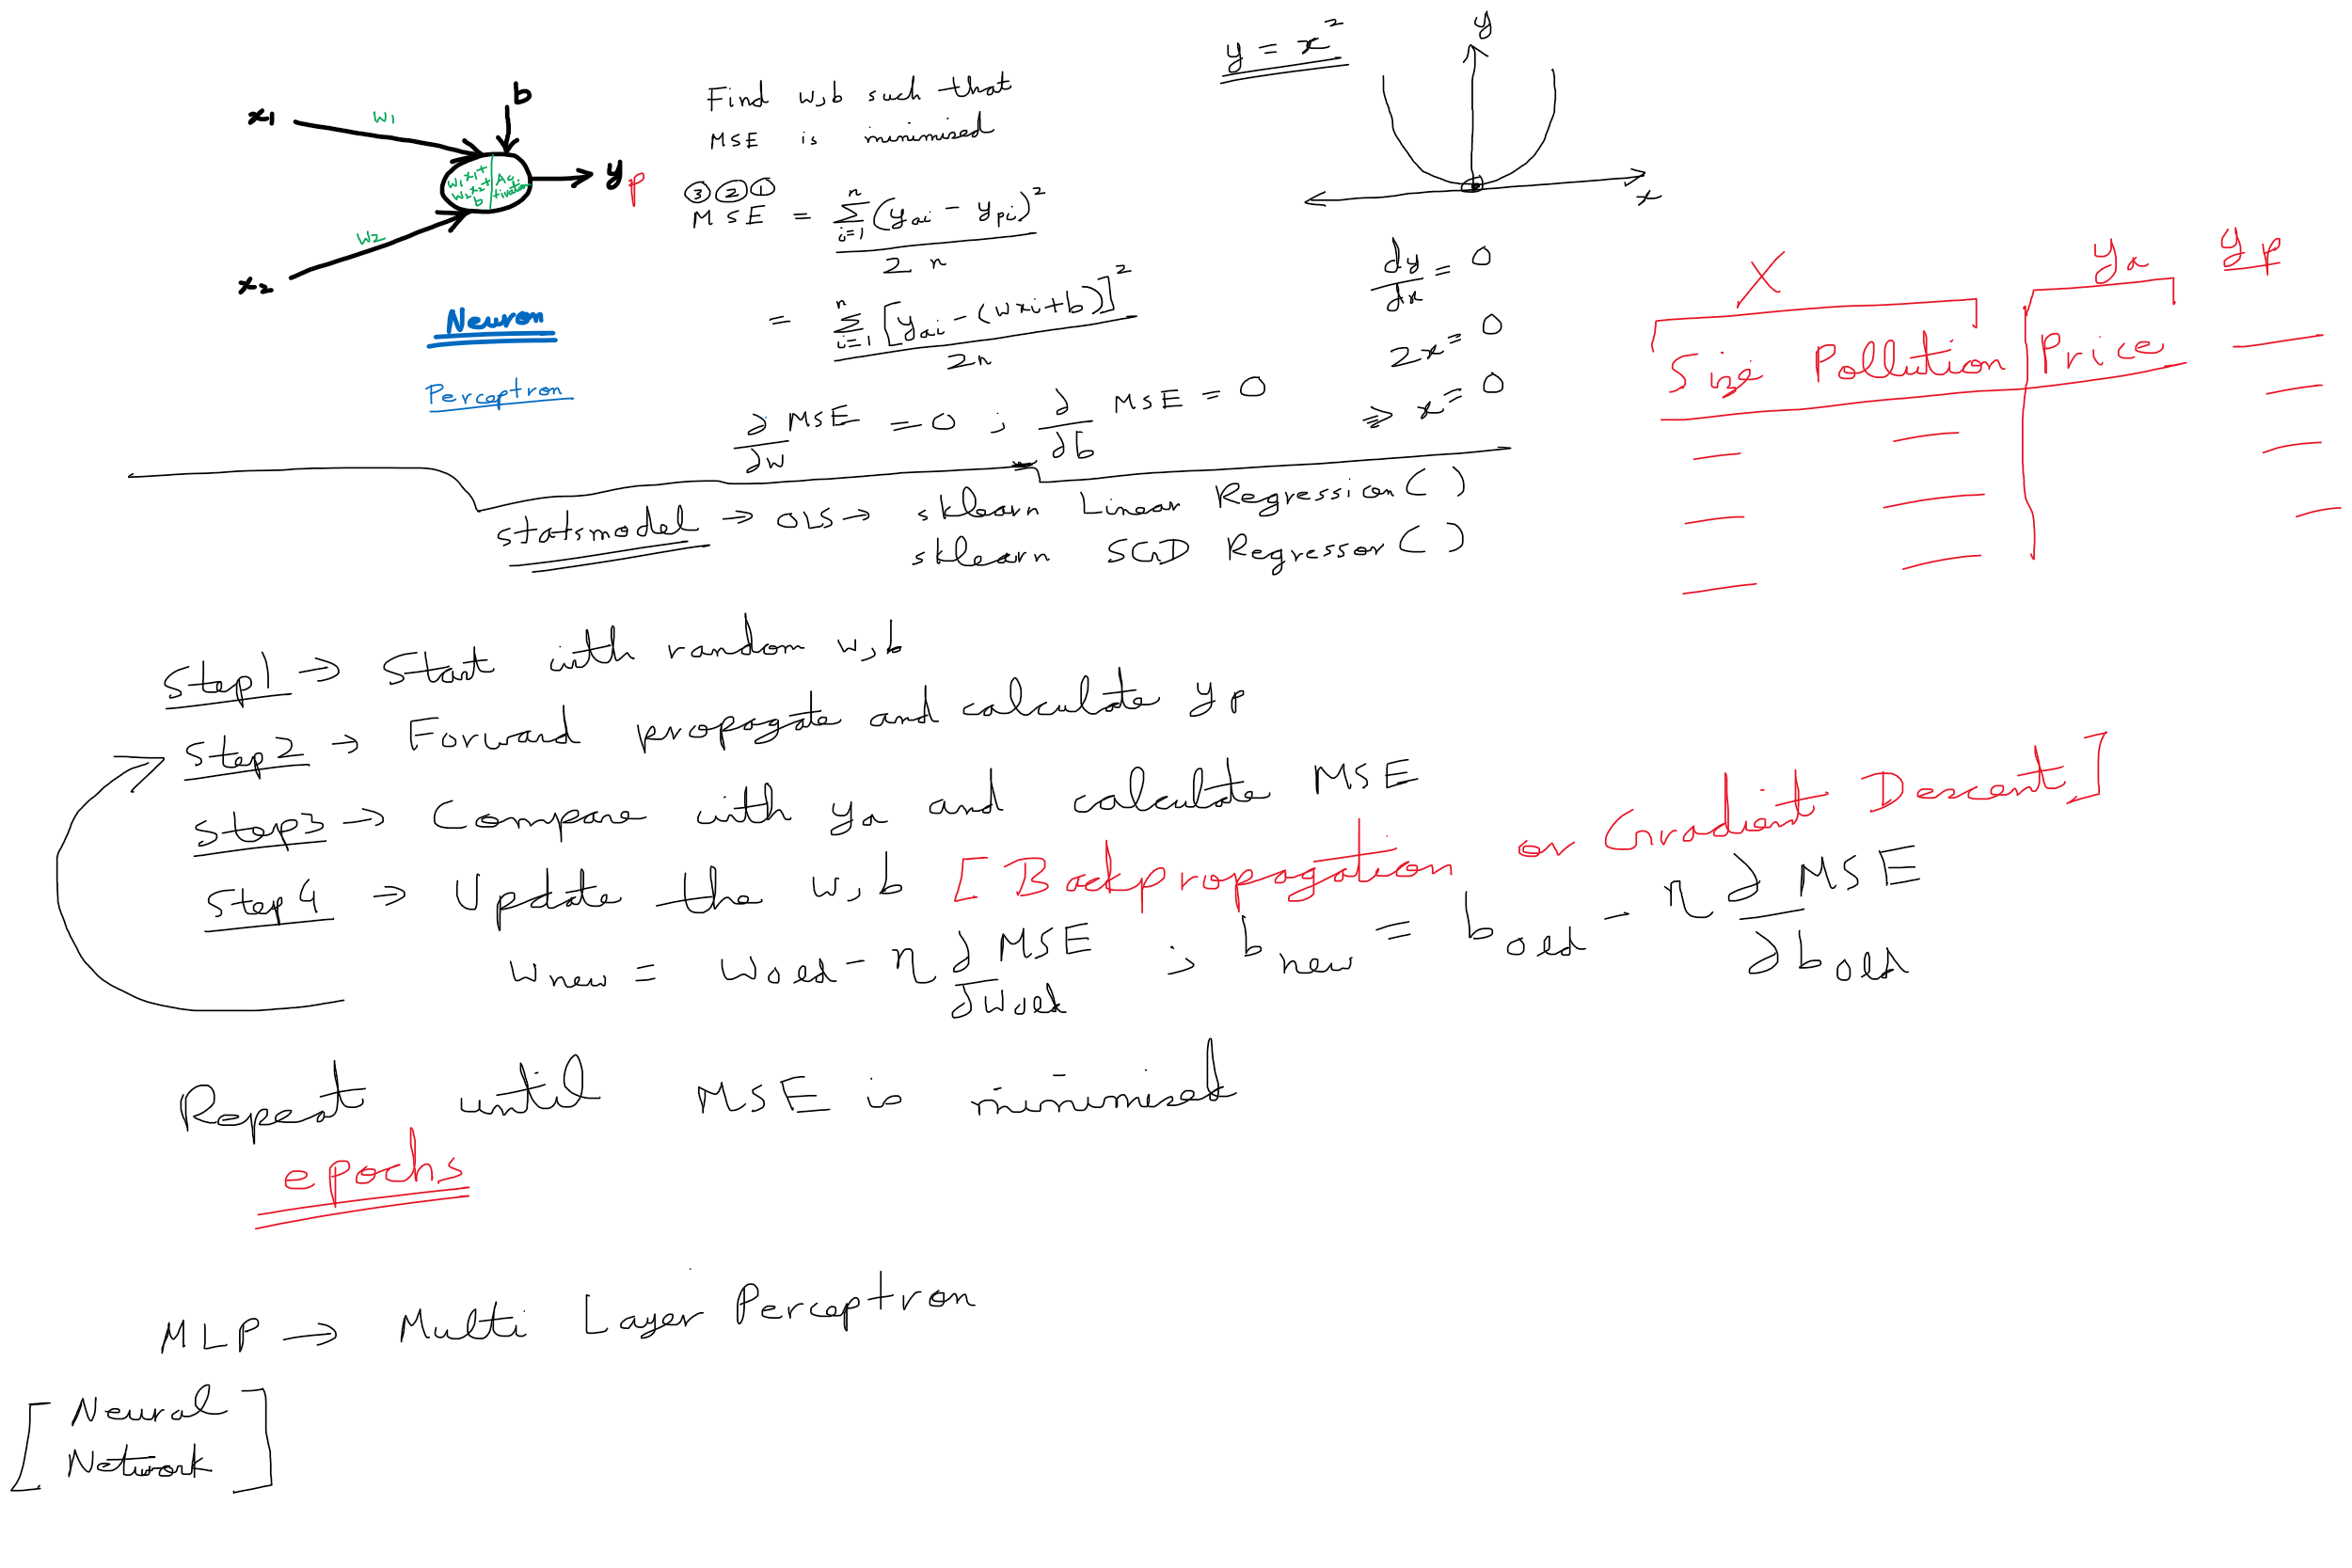 x1
w1
b
w1x1+
w2x2+
b
Ac
tivation
yp
w2
x2
Neuron
Perceptron
Find w,b such that
MSE is minimised
③ ② ①
MSE = Σ i=1 n (yai - ypi)² / 2n
= Σ i=1 n [yai - (wxi+b)]² / 2n
∂/∂w MSE = 0 ; ∂/∂b MSE = 0
y = x²
y
x
dy/dx = 0
2x = 0
⇒ x = 0
X ya yp
Size Pollution Price
statsmodel → OLS → sklearn Linear Regression()
sklearn SGD Regressor()
Step1 → Start with random w,b
Step2 → Forward propagate and calculate yp
Step3 → Compare with ya and calculate MSE
Step4 → Update the w,b [Backpropagation or Gradient Descent]
wnew = wold - η ∂MSE/∂wold ; bnew = bold - η ∂MSE/∂bold
Repeat until MSE is minimised
epochs
MLP → Multi Layer Perceptron
[Neural
Network]